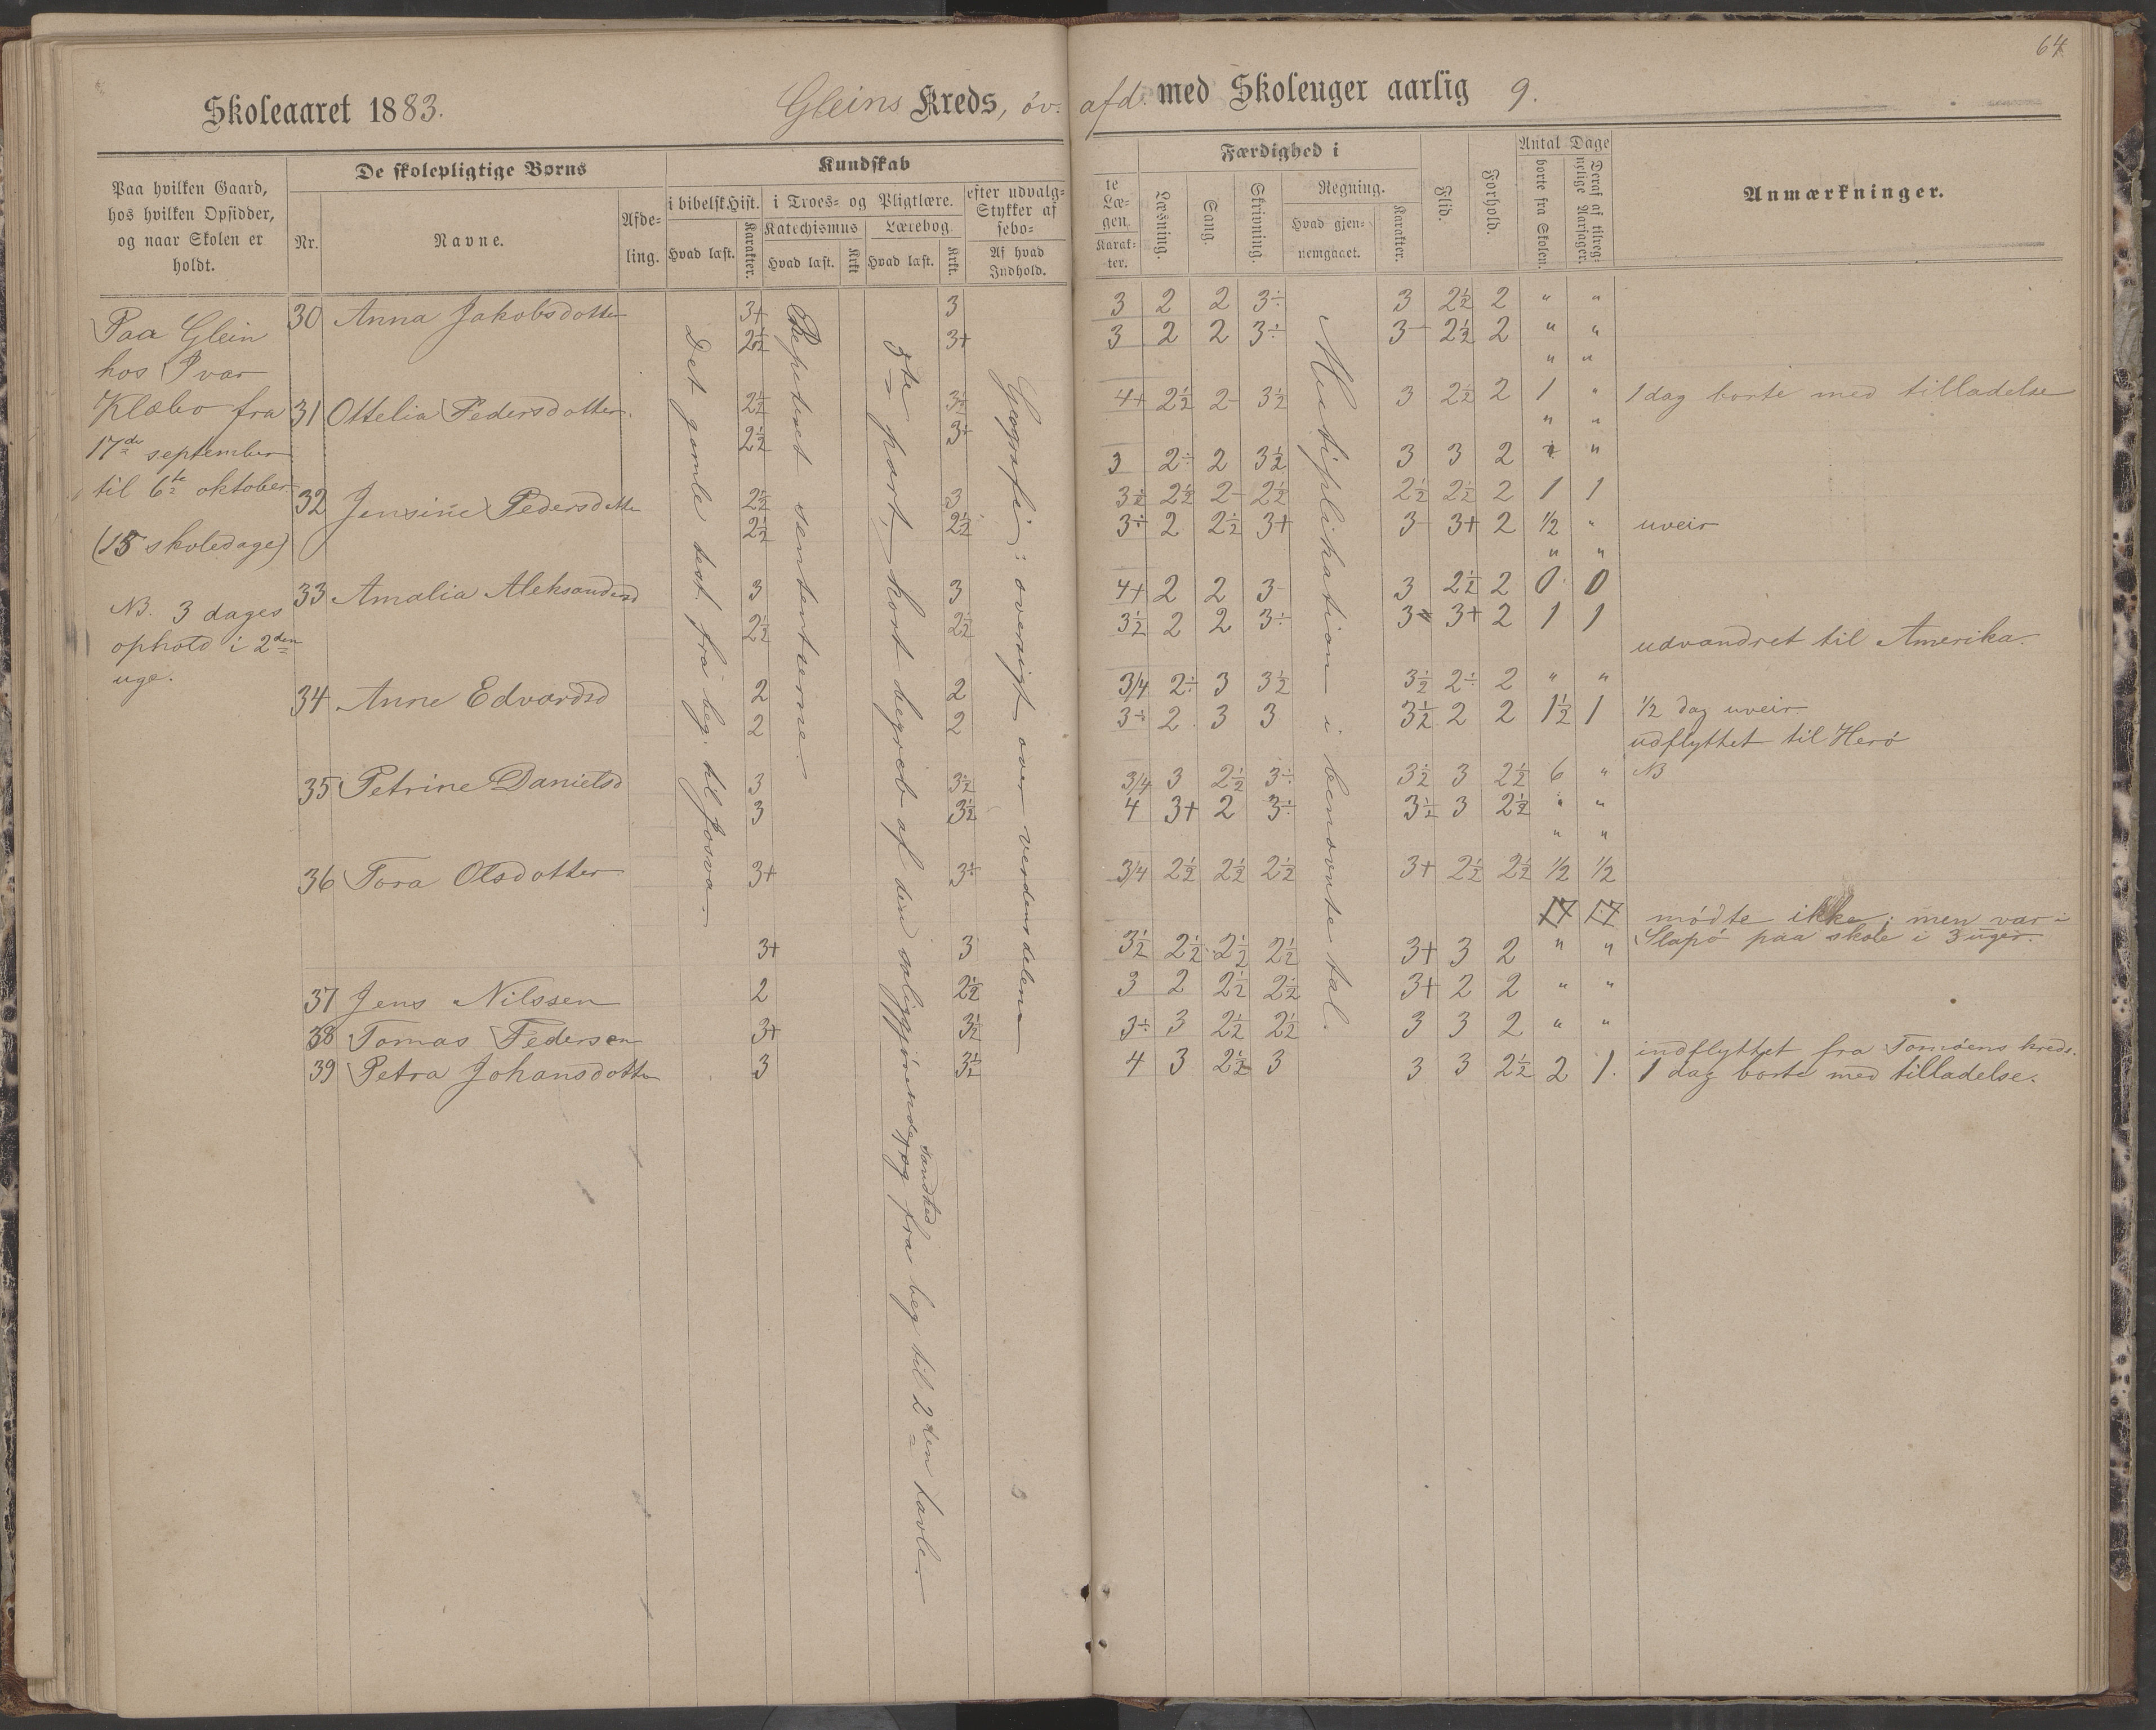 64
Skoleaaret 1883. Gleins Kreds, öv. afd. med Skoleuger aarlig 9.
Paa hvilken Gaard,
hos hvilken Opsidder,
og naar Skolen er
holdt.
De skolepligtige Børns
Nr.
Navne.
Afde-
ling.
Kundskab
i bibelsk Hist.
Hvad læst.
Karakter.
i Troes- og Pligtlære.
Katechismus
Hvad læst.
Krkt
Lærebog.
Hvad læst.
Krkt.
efter udvalg-
Stykker af
sebo-
Af hvad
Indhold.
te
Læ-
gen.
Karak-
ter.
Færdighed i
Læsning.
Sang.
Skrivning.
Regning.
Hvad gjen-
nemgaaet.
Karakter.
Flid.
Forhold.
Antal Dage
borte fra Skolen.
Deraf af tilreg-
nelige Aarsager.
Anmærkninger.
Paa Glein
hos Ivar
Klæbo fra
17de september
til 6te oktober
(18 skoledage)
NB. 3 dages
ophold i 2den
uge.
Det gamle test. fra beg. til Josva
Repeteret sententserne.
3te part, kort begreb af den saliggjørende sandhed og fra beg til 2den tavle.
Geografi: oversigt over verdensdelene
Multiplikation i benævnte tal.
30 Anna Jakobsdotter 3+ 3 3 2 2 3÷ 3 2½ 2 " "
2½ 3+ 3 2 2 3÷ 3- 2½ 2 " "
" "
31 Ottelia Pedersdotter. 2½ 3½ 4+ 2½ 2- 3½ 3 2½ 2 1 " 1 dag borte med tilladelse
" "
2½ 3+ 3 2÷ 2 3½ 3 3 2 " "
32 Jensine Pedersdatter 2½ 3 3½ 2½ 2- 2½ 2½ 2½ 2 1 1
2½ 2½ 3÷ 2 2½ 3+ 3- 3+ 2 ½ " uveir
" "
33 Amalia Aleksandersd 3 3 4+ 2 2 3- 3 2½ 2 0 0
2½ 2½ 3½ 2 2 3÷ 3 3+ 2 1 1
udvandret til Amerika.
34 Anne Edvardsd 2 2 3/4 2÷ 3 3½ 3½ 2÷ 2 " "
2 2 3÷ 2 3 3 3½ 2 2 1½ 1 ½ dag uveir
udflyttet til Herö
35 Petrine Danielsd 3 3½ 3/4 3 2½ 3÷ 3½ 3 2½ 6 " NB
3 3½ 4 3+ 2 3÷ 3½ 3 2½ " "
" "
36 Tora Olsdotter 3+ 3÷ 3/4 2½ 2½ 2½ 3+ 2½ 2½ ½ ½
17 17 mödte ikke; men var i
3+ 3 3½ 2½ 2½ 2½ 3+ 3 2 " " Slapö paa skole i 3 uger.
37 Jens Nilssen 2 2½ 3 2 2½ 2½ 3+ 2 2 " "
38 Tomas Pedersen 3+ 3½ 3÷ 3 2½ 2½ 3 3 2 " "
indflyttet fra Tomöens kreds.
39 Petra Johansdotter 3 3½ 4 3 2½ 3 3 3 2½ 2 1. 1 dag borte med tilladelse.